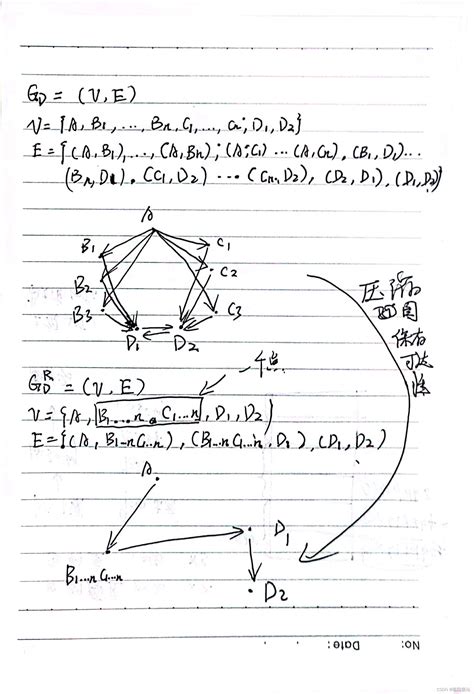 G_D = (V, E)
V={A, B1, ..., Bn, C1, ..., Cn; D1, D2}
E={(A, B1), ..., (A, Bn); (A, C1) ... (A, Cn), (B1, D1)...
(Bn, D1), (C1, D2) ... (Cn, D2), (D2, D1), (D1, D2)}
A
B1 C1
B2 C2
B3 C3
D1 D2
压缩
图
保存
可达
性
G_D^R = (V, E)
一个点
V={A, B1...n, C1...n, D1, D2}
E={(A, B1...nC1...n), (B1...nC1...n, D1), (D1, D2)
A
D1
B1...nC1...n
D2
No:
Date: